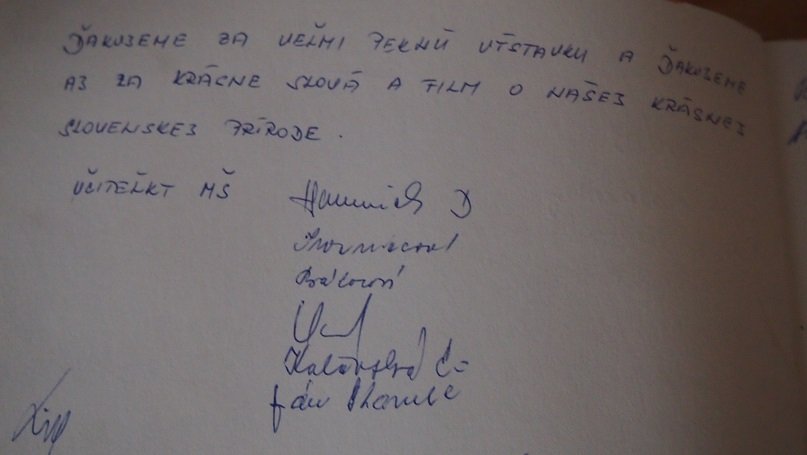 ĎAKUJEME ZA VEĽMI PEKNÚ VÝSTAVKU A ĎAKUJEME
AJ ZA KRÁSNE SLOVÁ A FILM O NAŠEJ KRÁSNEJ
SLOVENSKEJ PRÍRODE.
UČITEĽKY MŠ
D
Ján